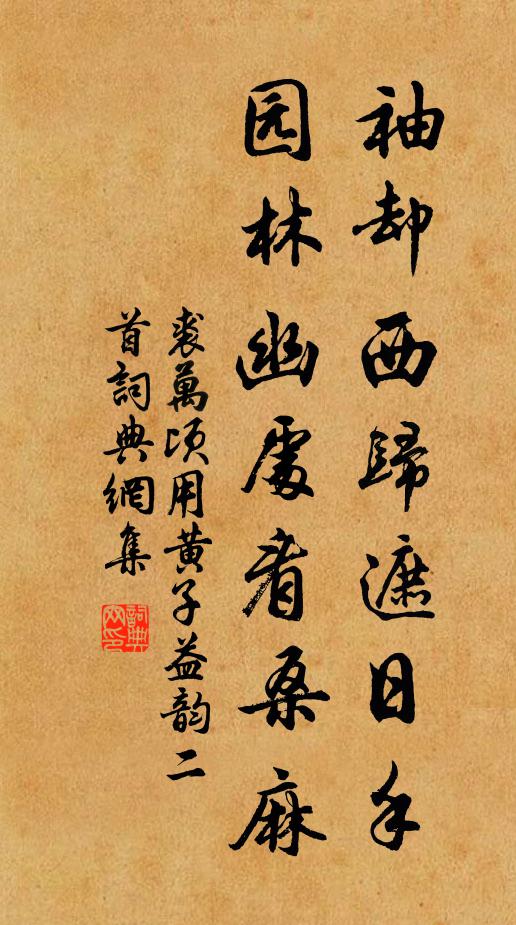 袖却西歸遮日手
园林幽處看桑麻
裘萬顷用黄子益韵二
首詞典網集
詞典网印